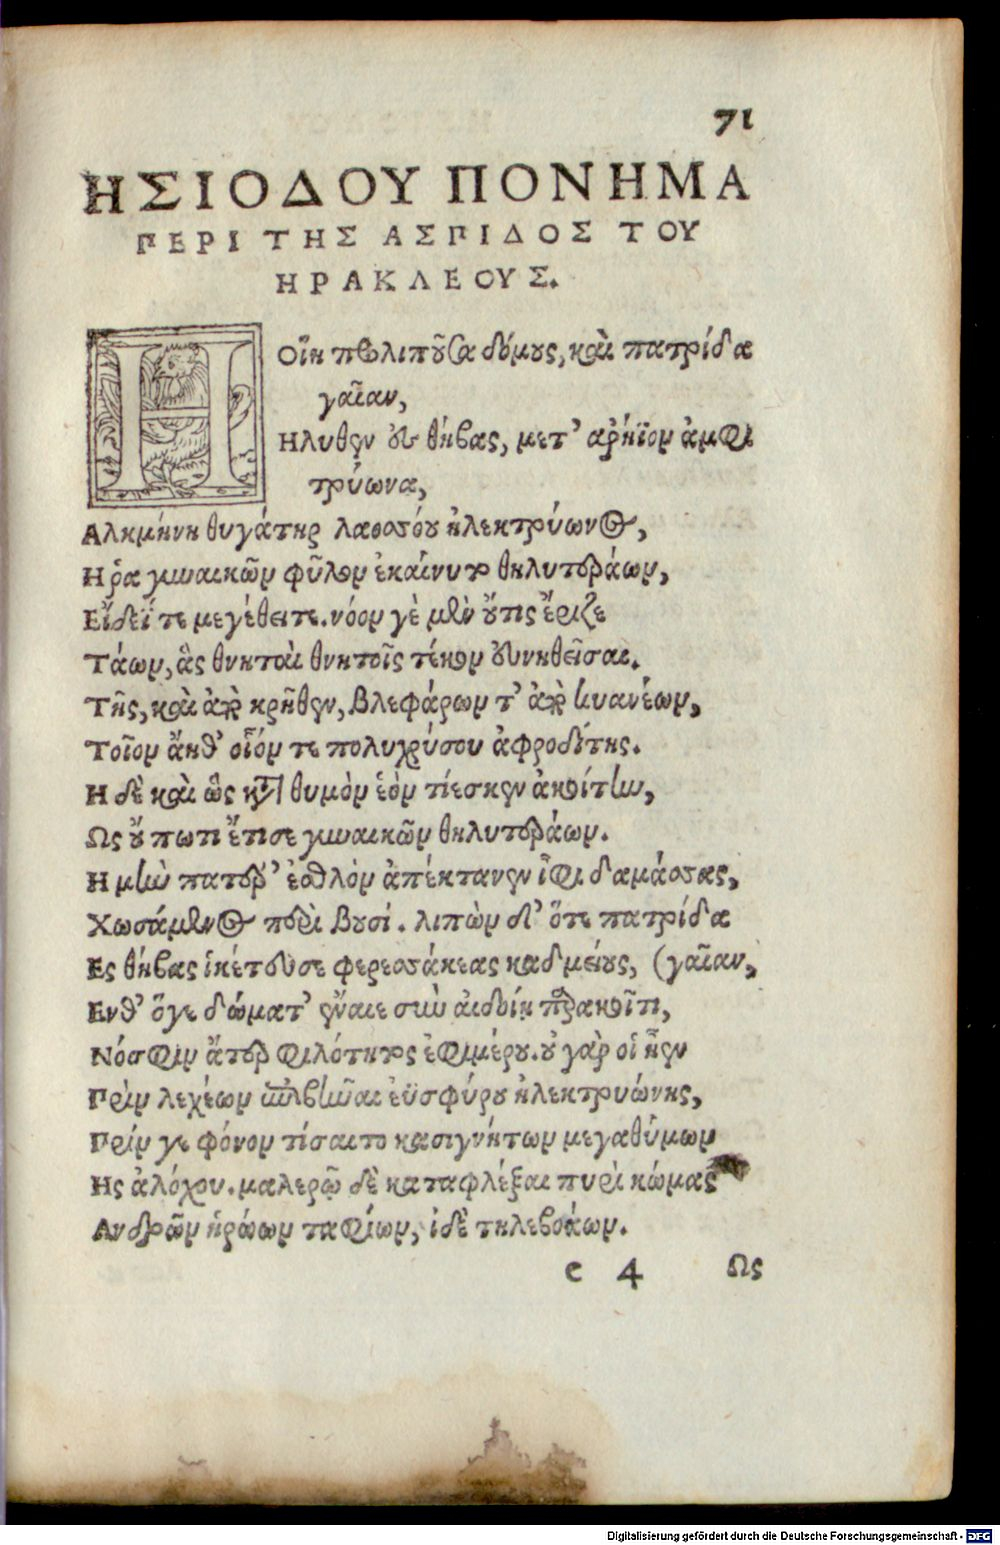 71
ΗΣΙΟΔΟΥ ΠΟΝΗΜΑ
ΠΕΡΙ ΤΗΣ ΑΣΠΙΔΟΣ ΤΟΥ
ΗΡΑΚΛΕΟΥΣ.
Η Οἵη προλιποῦσα δόμους, καὶ πατρίδα
γαῖαν,
Ηλυθεν ἐς θήβας, μετ' ἀρήϊον ἀμφι
τρύωνα,
Αλκμήνη θυγάτηρ λαοσόου ἠλεκτρύωνος,
Η ῥα γυναικῶν φῦλον ἐκαίνυτο θηλυτεράων,
Εἴδεΐ τε μεγέθει τε. νόον γὲ μὲν οὔτις ἔριζε
Τάων, ἃς θνηταὶ θνητοῖς τέκον εὐνηθεῖσαι.
Τῆς, καὶ ἀπὸ κρῆθεν, βλεφάρων τ' ἀπὸ κυανέων,
Τοῖον ἄηθ' οἷόν τε πολυχρύσου ἀφροδίτης.
Η δὲ καὶ ὣς κατὰ θυμὸν ἑὸν τίεσκεν ἀκοίτην,
Ως οὔ πωτι ἔτισε γυναικῶν θηλυτεράων.
Η μὲν πατέρ' ἐσθλὸν ἀπέκτανεν ἶφι δαμάσσας,
Χωσάμενος περὶ βουσί. λιπὼν δ' ὅτε πατρίδα
Ες θήβας ἱκέτευσε φερεσσάκεας καδμείους, (γαῖαν,
Ενθ' ὅγε δώματ' ἔναιε σὺν αἰδοίῃ παρακοῖτι,
Νόσφιν ἄτερ φιλότητος ἐφιμέρου. οὐ γάρ οἱ ἦεν
Πρὶν λεχέων ἐπιβῆναι ἐϋσφύρου ἠλεκτρυώνης,
Πρίν γε φόνον τίσαιτο κασιγνήτων μεγαθύμων
Ης ἀλόχου. μαλερῷ δὲ καταφλέξαι πυρὶ κώμας
Ανδρῶν ἡρώων ταφίων, ἰδὲ τηλεβοάων.
e 4 Ως
Digitalisierung gefördert durch die Deutsche Forschungsgemeinschaft - DFG